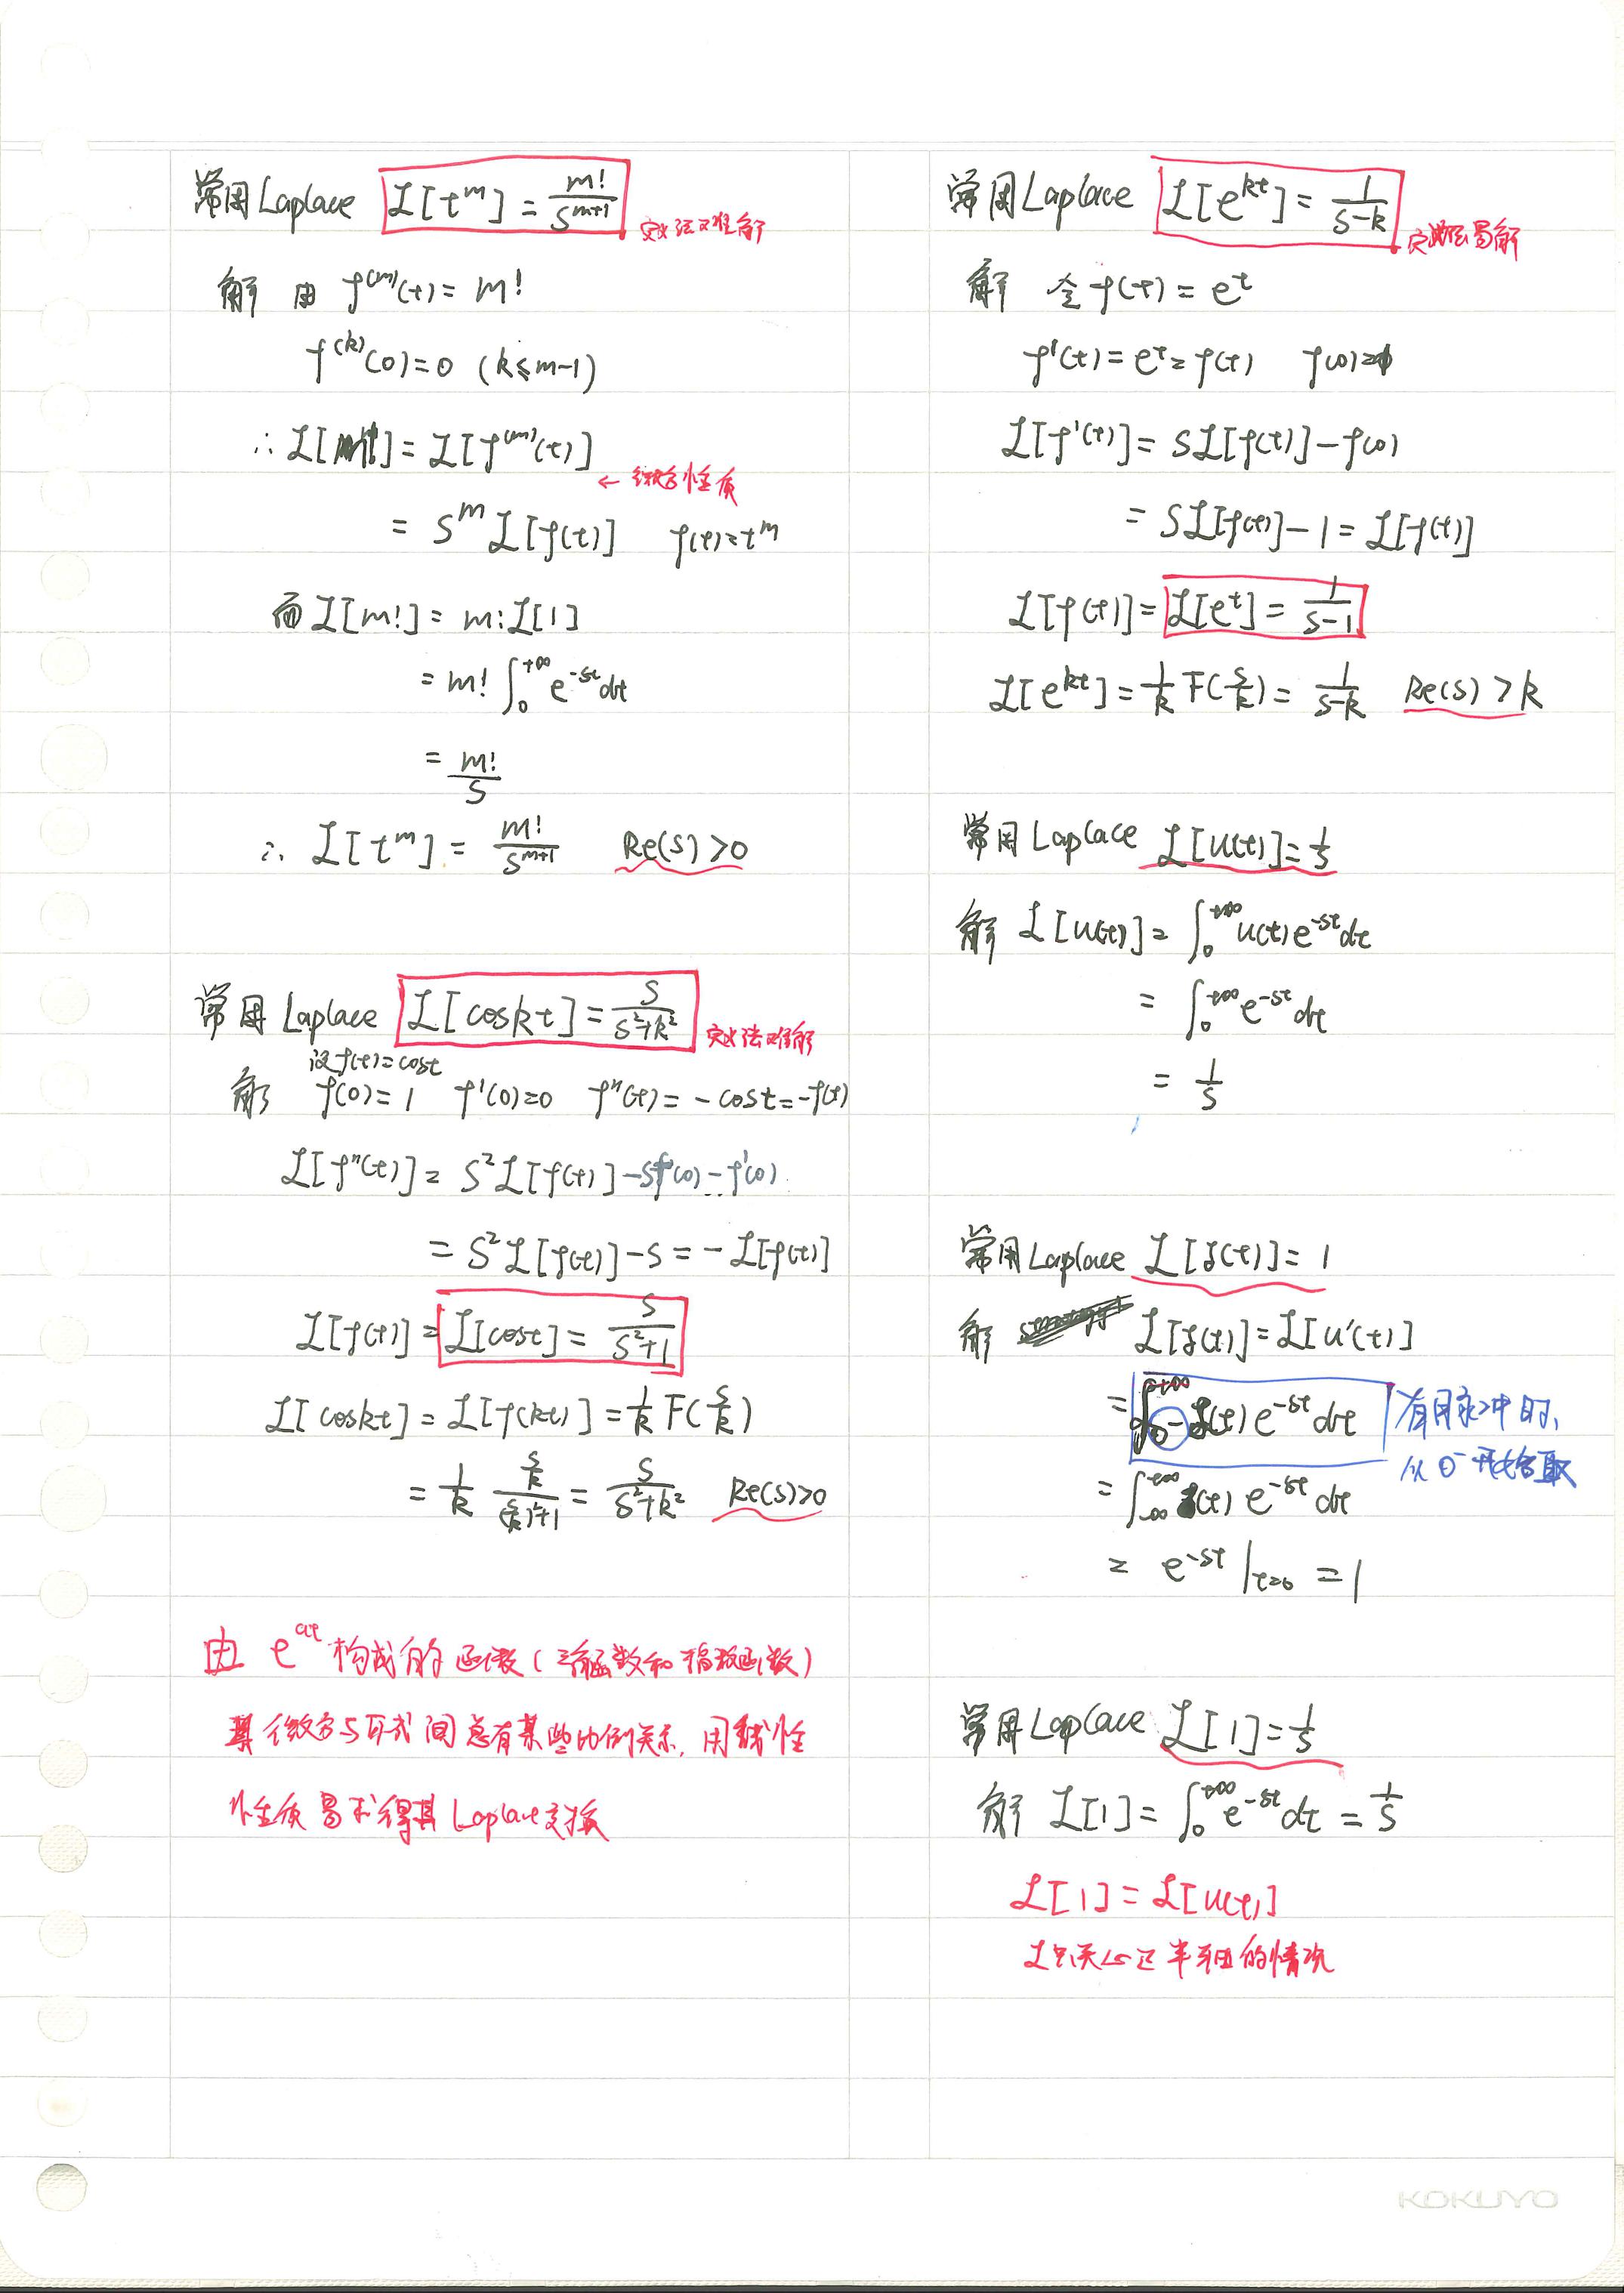 常用Laplace ℒ[t^m] = m!/s^(m+1) 定义法又难解
解 由 f^(m)(t) = m!
f^(k)(0) = 0 (k≤m-1)
∴ ℒ[m!] = ℒ[f^(m)(t)]
← 微分性质
= s^m ℒ[f(t)] f(t) = t^m
而 ℒ[m!] = m! ℒ[1]
= m! ∫_0^(+∞) e^(-st) dt
= m!/s
∴ ℒ[t^m] = m!/s^(m+1) Re(s) > 0
常用 Laplace ℒ[cos kt] = s/(s²+k²) 定义法难解
设f(t) = cost
解 f(0) = 1 f'(0) = 0 f''(t) = -cost = -f(t)
ℒ[f''(t)] = s² ℒ[f(t)] - sf(0) - f'(0)
= s² ℒ[f(t)] - s = -ℒ[f(t)]
ℒ[f(t)] = ℒ[cost] = s/(s²+1)
ℒ[coskt] = ℒ[f(kt)] = 1/k F(s/k)
= 1/k (s/k)/((s/k)²+1) = s/(s²+k²) Re(s)>0
由 e^(at) 构成的函数(三角函数和指数函数)
其微分与原式间总有某些比例关系，用线性
性质易求得其Laplace变换
常用Laplace ℒ[e^(kt)] = 1/(s-k) 定义法易解
解 令 f(t) = e^t
f'(t) = e^t = f(t) f(0)=1
ℒ[f'(t)] = sℒ[f(t)] - f(0)
= sℒ[f(t)] - 1 = ℒ[f(t)]
ℒ[f(t)] = ℒ[e^t] = 1/(s-1)
ℒ[e^(kt)] = 1/k F(s/k) = 1/(s-k) Re(s) > k
常用Laplace ℒ[u(t)] = 1/s
解 ℒ[u(t)] = ∫_0^(+∞) u(t) e^(-st) dt
= ∫_0^(+∞) e^(-st) dt
= 1/s
常用Laplace ℒ[δ(t)] = 1
解 ℒ[δ(t)] = ℒ[u'(t)]
= ∫_(0-)^(+∞) δ(t) e^(-st) dt 有用脉冲时，
从0⁻开始取
= ∫_(-∞)^(+∞) δ(t) e^(-st) dt
= e^(-st) |_(t=0) = 1
常用Laplace ℒ[1] = 1/s
解 ℒ[1] = ∫_0^(+∞) e^(-st) dt = 1/s
ℒ[1] = ℒ[u(t)]
ℒ只关心正半轴的情况
KOKUYO